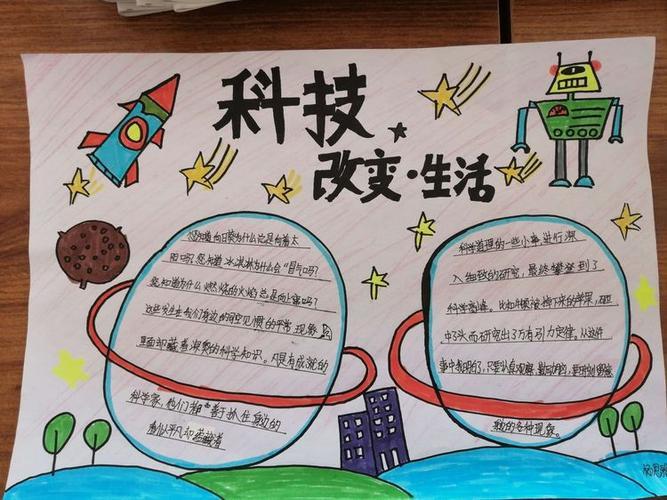 科技
改变·生活
您知道向日葵为什么总是向着太
阳吗?您知道冰淇淋为什么会“冒气”吗?
您知道为什么燃烧的火焰总是向上窜吗?
这些发生在我们身边的司空见惯的平常现象
里面却藏着深奥的科学知识。凡是有成就的
科学家,他们都善于抓住身边的
看似平凡却蕴藏着
科学道理的一些小事进行深
入细致的研究,最终攀登到了
科学高峰。比如牛顿被掉下来的苹果,砸
中了头而研究出了万有引力定律。从这件
事中表明了,只要认真观察,勤动脑筋,
的各种现象。